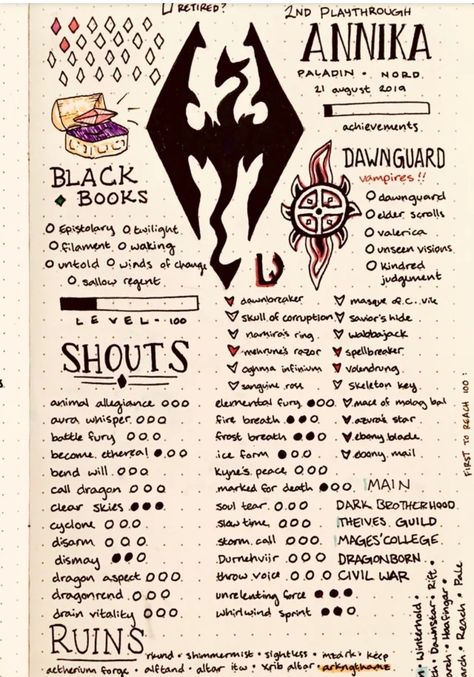 RETIRED?
2ND PLAYTHROUGH
ANNIKA
PALADIN • NORD
21 august 2019
achievements
BLACK
BOOKS
Epistolary twilight
filament waking
untold winds of change
sallow regent
DAWNGUARD
vampires!!
dawnguard
elder scrolls
valerica
unseen visions
kindred
judgement
LEVEL 100
dawnbreaker masque of c. vile
skull of corruption savior's hide
namira's ring wabbajack
mehrune's razor spellbreaker
oghma infinium volendrung
sanguine rose skeleton key
SHOUTS
animal allegiance
aura whisper
battle fury
become ethereal
bend will
call dragon
clear skies
cyclone
disarm
dismay
dragon aspect
dragonrend
drain vitality
elemental fury mace of molag bal
fire breath azura's star
frost breath ebony blade
ice form ebony mail
kyne's peace
marked for death
soul tear
slow time
storm call
Durnehviir
throw voice
unrelenting force
whirlwind sprint
MAIN
DARK BROTHERHOOD
THEIVES GUILD
MAGES' COLLEGE
DRAGONBORN
CIVIL WAR
FIRST TO REACH 100:
Winterhold •
Downstar • Rift •
Haafingar •
Reach • Pale
RUINS
rkund • shimmermist • sightless • mzark • keep
aetherium forge • alftand • altar itw • xrib altar • arkngthamz